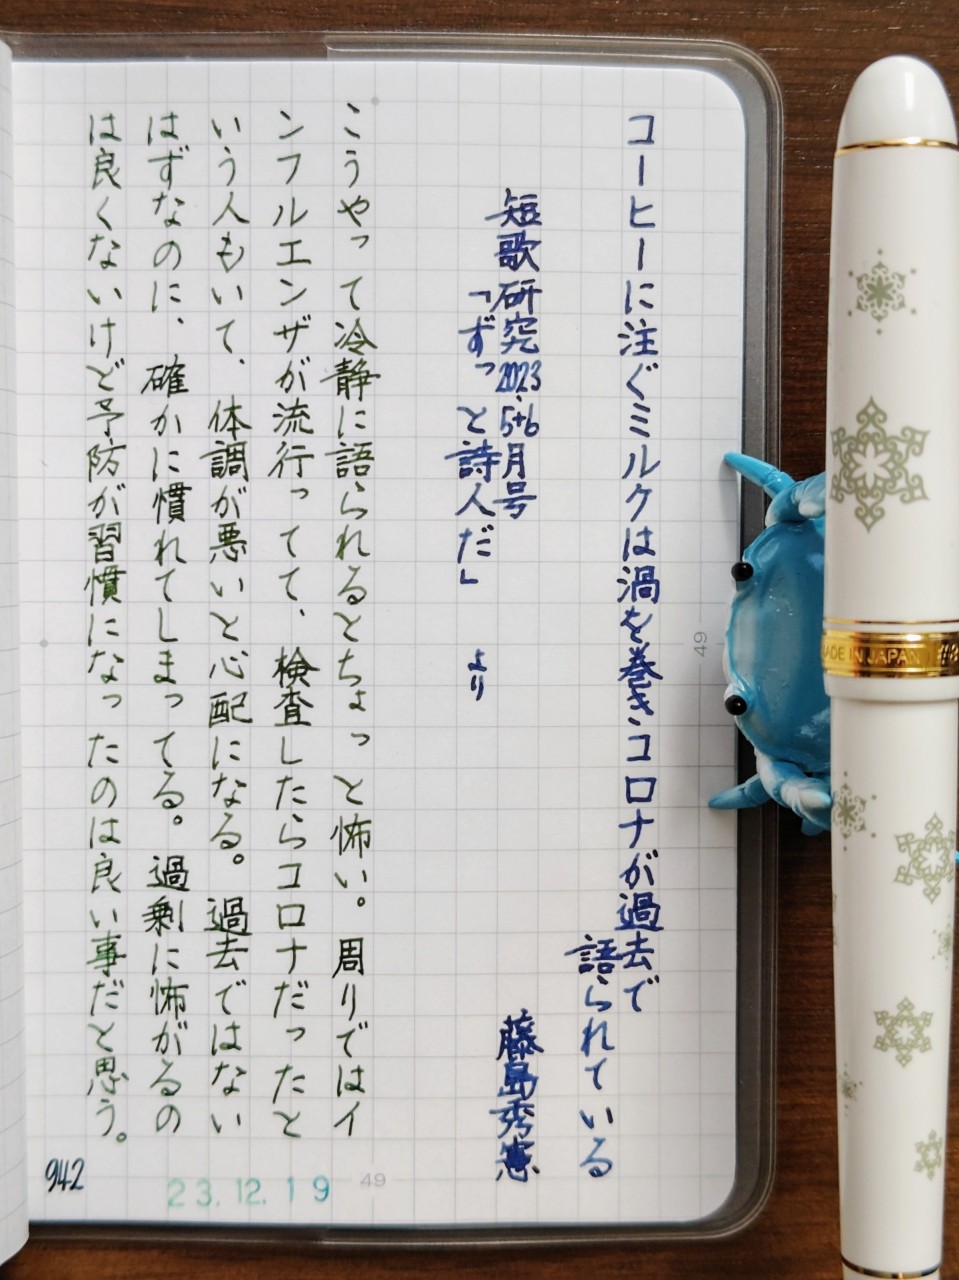 コーヒーに注ぐミルクは渦を巻きコロナが過去で
語られている
短歌研究2023.5+6月号
「ずっと詩人だ」 より
藤島秀憲
こうやって冷静に語られるとちょっと怖い。周りではイ
ンフルエンザが流行ってて、検査したらコロナだったと
いう人もいて、体調が悪いと心配になる。過去ではない
はずなのに、確かに慣れてしまってる。過剰に怖がるの
は良くないけど予防が習慣になったのは良い事だと思う。
942
23.12.19
49
49
MADE IN JAPAN